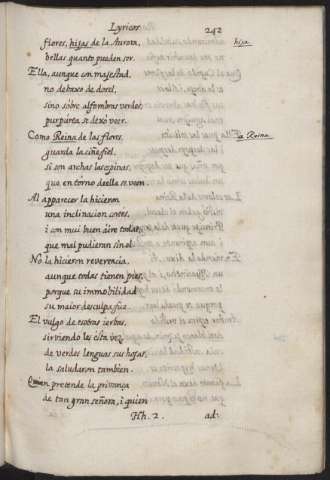 Lyricas. 242
flores, hijas de la Aurora, hija.
bellas quanto pueden ser.
Ella, aunque con majestad,
no debaxo de dosel,
sino sobre alfombras verdes,
purpurea se dexò veer.
Como Reina de las flores, a Reina.
guarda la ciñe fiel,
si son archas las espinas,
que en torno de ella se veen.
Al apparecer la hicieron
una inclinacion cortes,
i con mui buen aire todas,
que mal pudieran sin el.
No la hicieron reverencia,
aunque todas tienen pies,
porque su immobilidad
su maior desculpa fue.
El vulgo de essotras ierbas,
sirviendo les esta vez
de verdes lenguas sus hojas,
la saludaron tambien.
Quien pretende la privança
de tan gran señora, i quien
Hh. 2. ad-